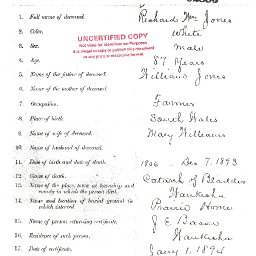 1. Full name of deceased. Richard Wm Jones
2. Color. White
UNCERTIFIED COPY
Not Valid for Identification Purposes
3. Sex. Male
4. Age. 87 Years
5. Name of the father of deceased. William Jones
6. Name of the mother of deceased.
7. Occupation. Farmer
8. Place of birth. South Wales
9. Name of wife of deceased. Mary Williams
10. Name of husband of deceased.
11. Date of birth and date of death. 1806 - Dec 7. 1893
12. Cause of death. Catarrh of Bladder
13. Name of the place, town or township and county in which the person died. Waukesha
14. Name and location of burial ground in which interred. Prairie Home
15. Name of person returning certificate.
16. Residence of such person. Waukesha
17. Date of certificate. Jany 1. 1894